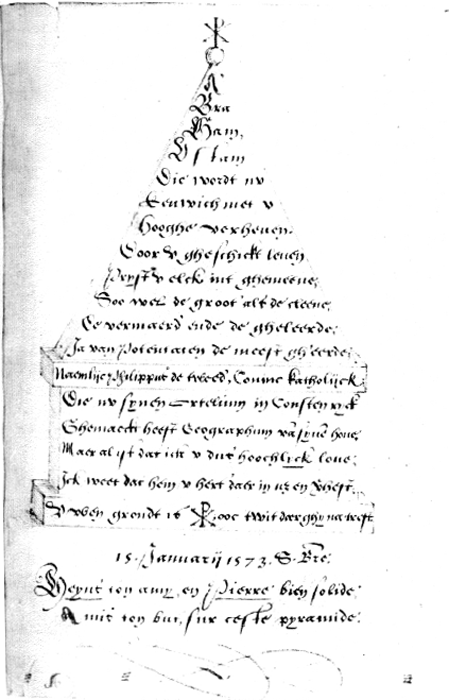 A
Bra
Ham,
V stam
Die wordt nu
Eeuwich met v
Hooghe verheven.
Door v gheschickt leuen
Pryst v elck int ghemeene,
Soo wel de groot als de cleene,
De vermaerd' ende de gheleerde,
Ja van Potentaten de meest gh'eerde,
Naemlijck Philippus de tweed', Coninc katholijck
Die nu synen Ortelium in Consten ryck
Ghemaeckt heeft Geographum van synen houe,
Maer al ist dat ick v dus hoochlijck loue,
Ick weet dat hem v hert daer in
V grondt is ☧ ooc twit daer ghy na treft
15. Januarij 1573. S. Bre.
Heyns ton amy, en Pierre bien solide,
A mis ton but, sur ceste pyramide.